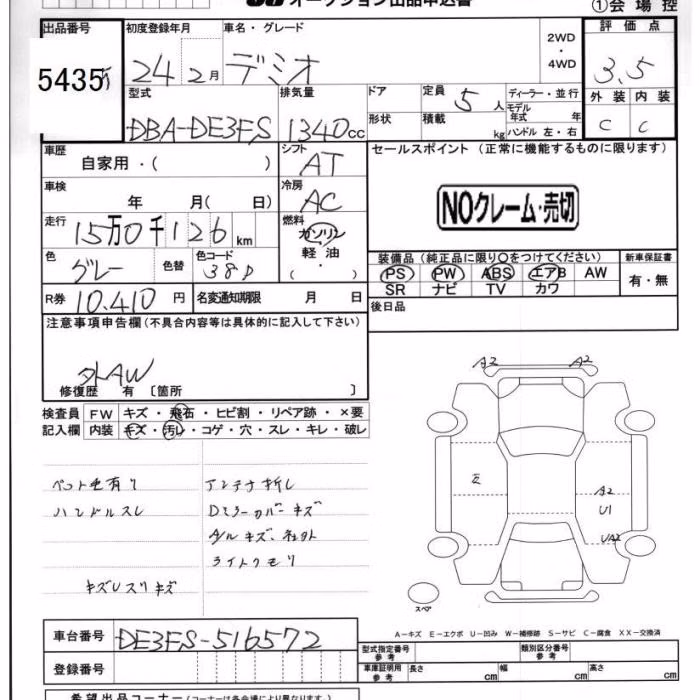 オークション出品申込書
①会場控
出品番号 初度登録年月 車名・グレード 2WD・4WD 評価点
5435 24年2月 デミオ 3.5
型式 排気量 ドア 定員 5人 ディーラー・並行 外装 内装
形状 積載 kg モデル年式 年 ハンドル 左・右
DBA-DE3FS 1340cc C C
車歴 シフト セールスポイント(正常に機能するものに限ります)
自家用・( ) AT
車検 冷房
年 月( 日) AC NOクレーム・売切
走行 燃料
15万0千126km ガソリン
軽油
・
( )
色 色替 色コード 装備品(純正品に限り○をつけてください) 新車保証書
グレー 38P PS PW ABS エアB AW 有・無
SR ナビ TV カワ
R券 10.410円 名変通知期限 月 日 後日品
注意事項申告欄(不具合内容等は具体的に記入して下さい)
外AW
修復歴 有 〔箇所 〕
A2 A2
検査員 FW キズ・飛石・ヒビ割・リペア跡・×要
記入欄 内装 キズ・汚レ・コゲ・穴・スレ・キレ・破レ
ペット毛有り アンテナ折レ E A2
ハンドルスレ Dミラーカバーキズ U1
A/Wキズ、社外 UA2
ライトクモリ
キズレスリキズ
スペア
A-キズ E-エクボ U-凹み W-補修跡 S-サビ C-腐食 XX-交換済
車台番号 DE3FS-516572 型式指定番号 参考 類別区分番号 参考
登録番号 車庫証明用 参考 長さ cm 幅 cm 高さ cm
希望出品コーナー(コーナーは各会場により異なります。)